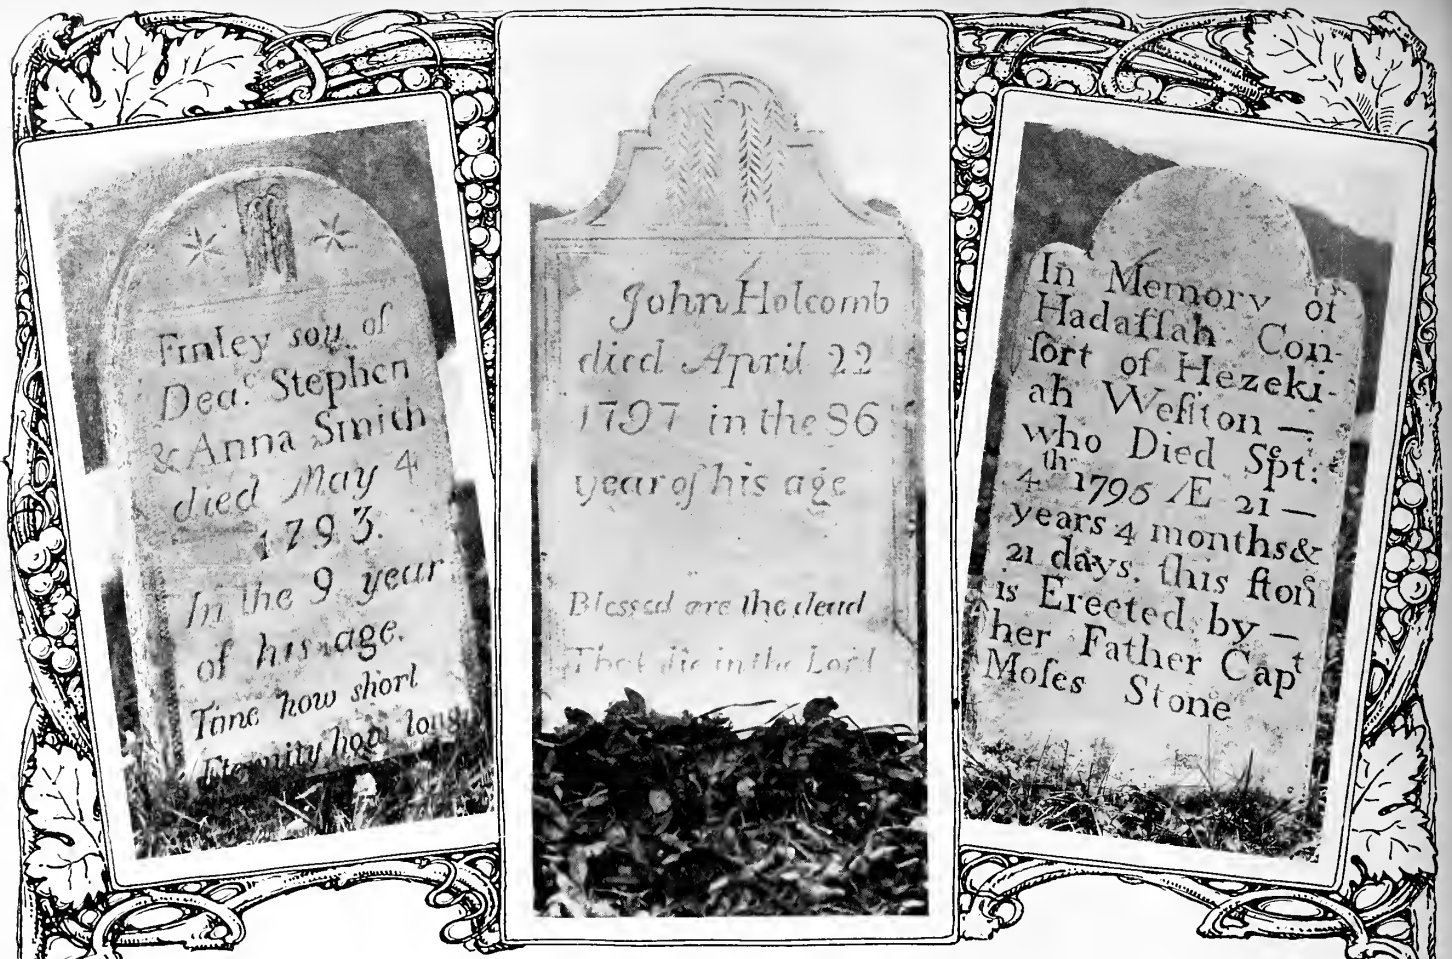 Finley son of
Deaᶜ. Stephen
& Anna Smith
died May 4
1793.
In the 9 year
of his age.
Time how short
Eternity how long
John Holcomb
died April 22
1797 in the 86
year of his age
Blessed are the dead
That die in the Lord
In Memory of
Hadaſſah Con-
ſort of Hezeki-
ah Weſton —
who Died Sᵉpt:
4ᵗʰ 1795 Æ 21 —
years 4 months &
21 days. this ſtonᵉ
is Erected by —
her Father Capᵗ
Moſes Stone